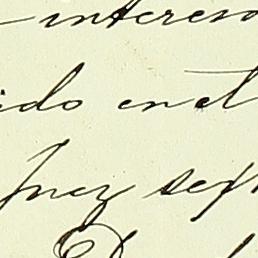 interes
ido en el
Juez sep